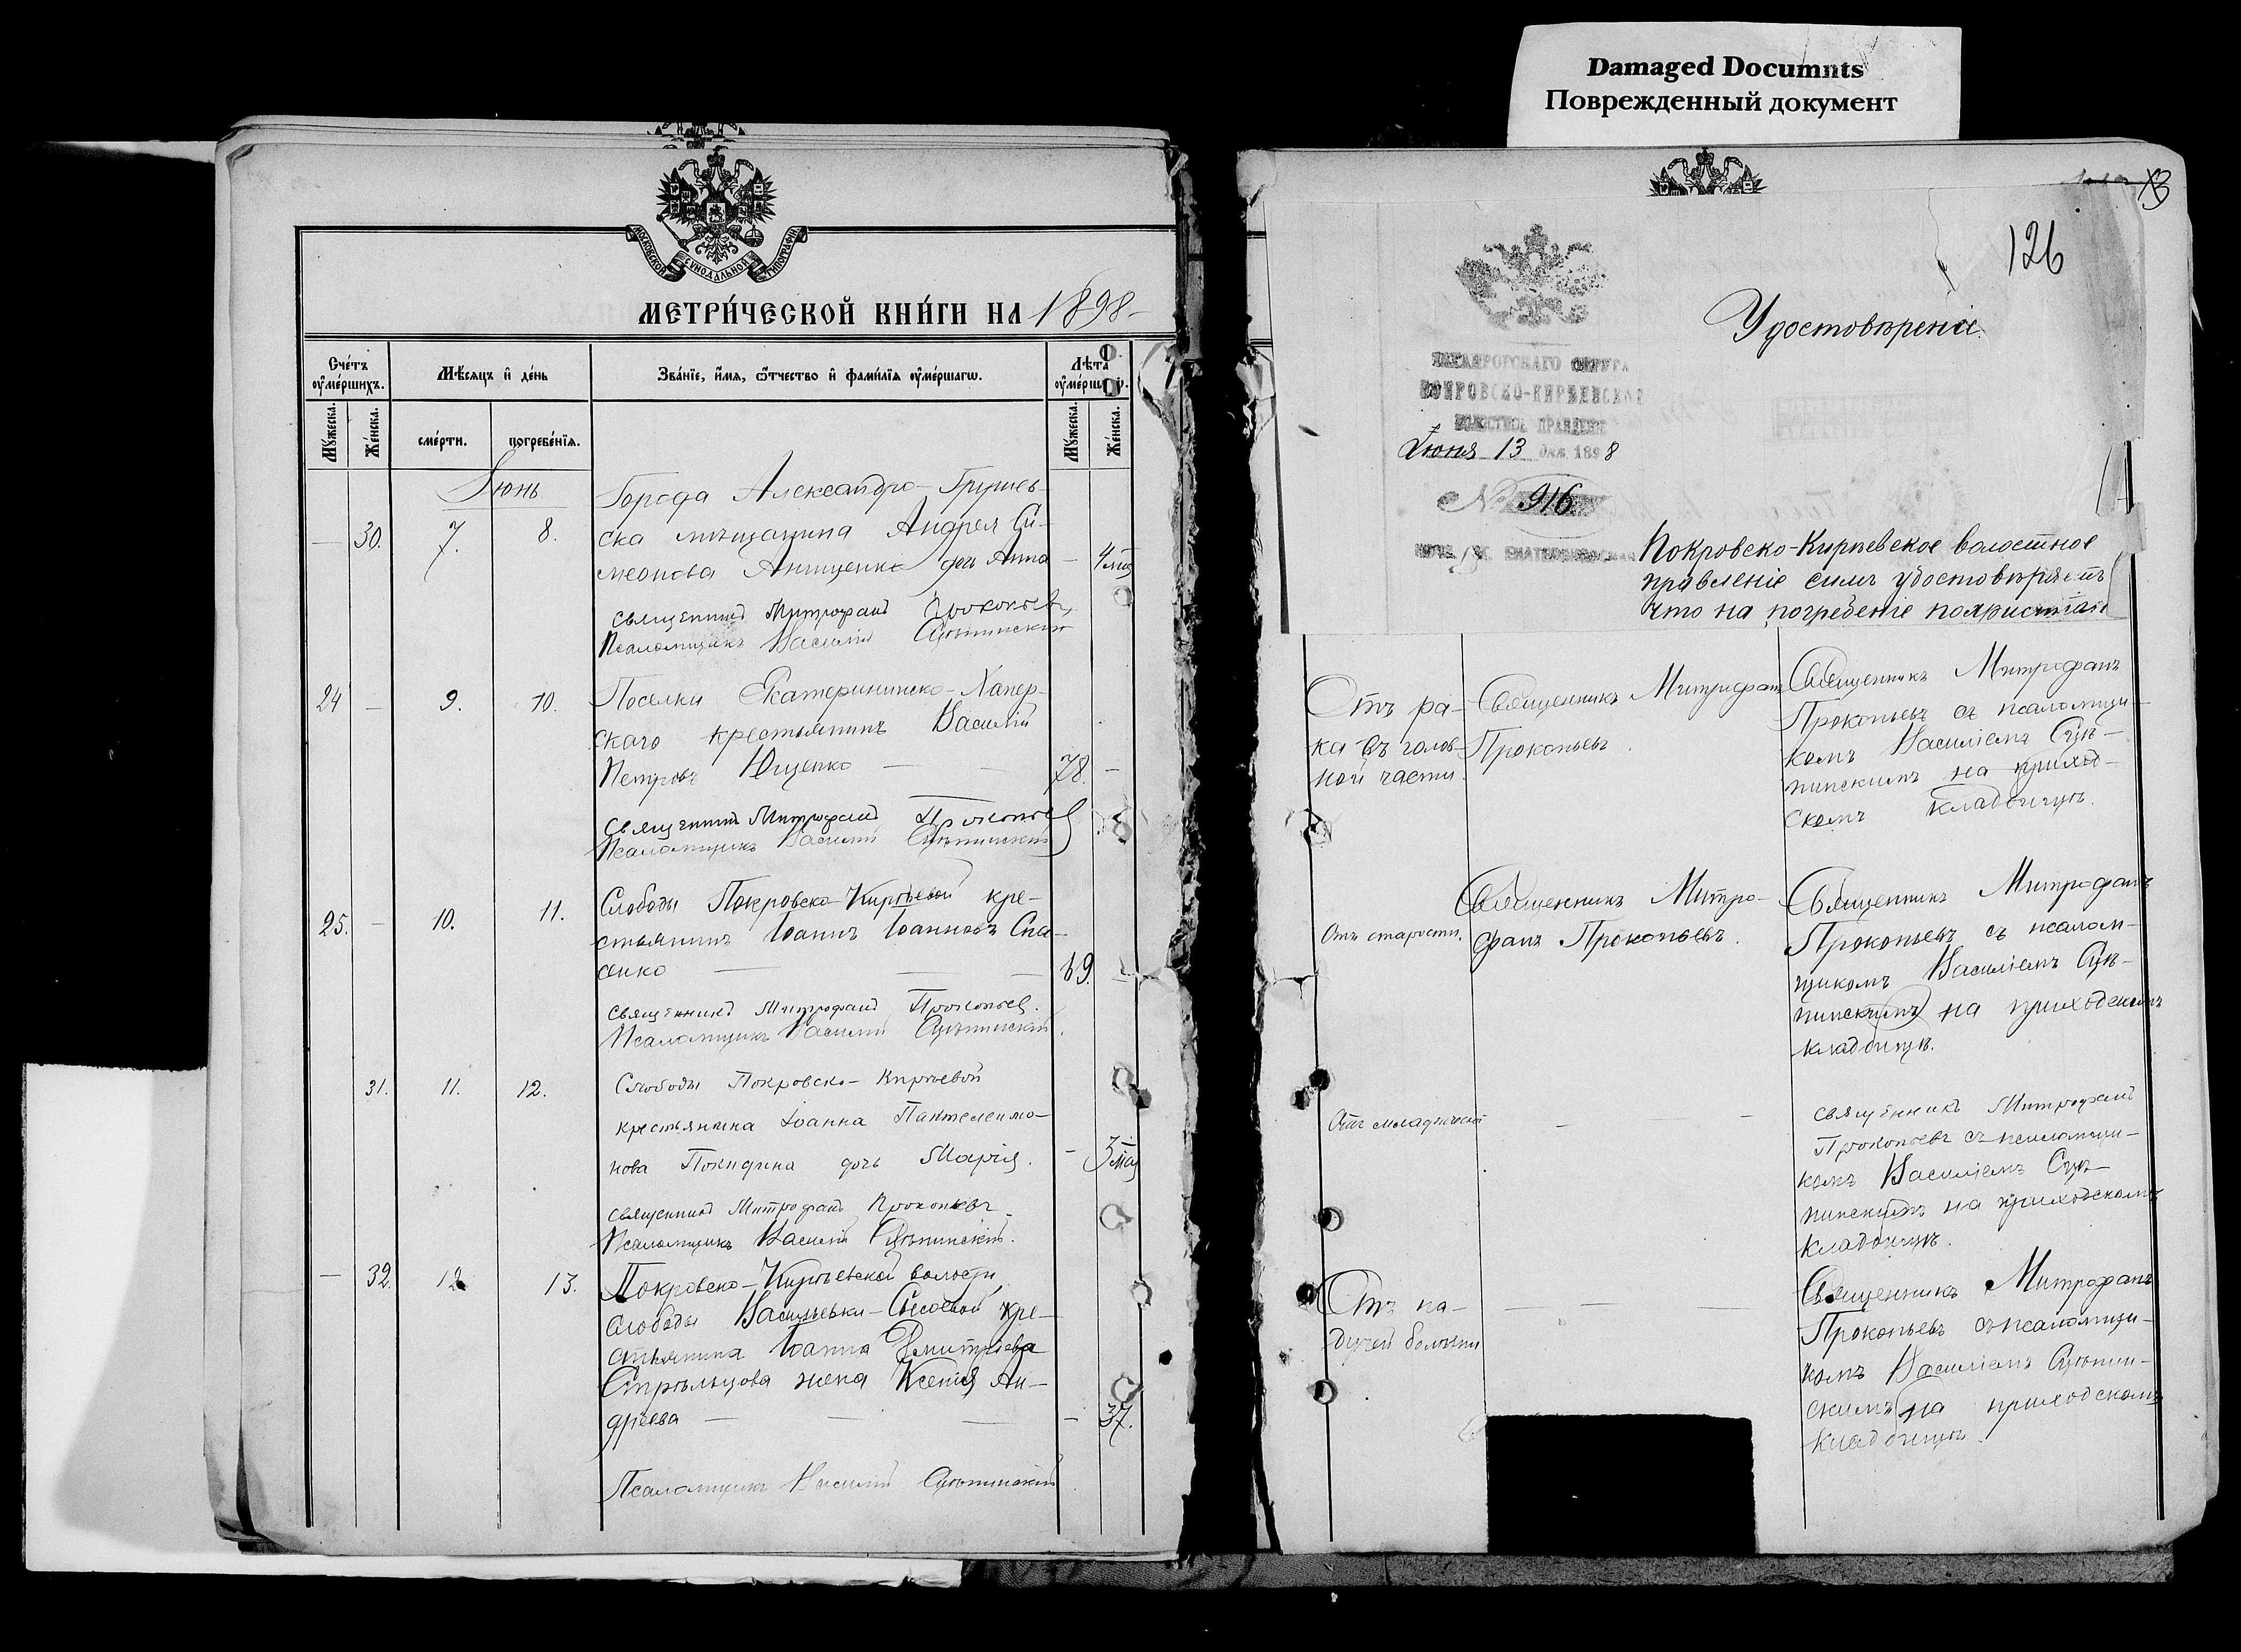 Damaged Documnts
Поврежденный документ
МОСКОВСКОЙ СѴНОДАЛЬНОЙ ТИПОГРАФІИ
МЕТРИ́ЧЕСКОЙ КНИ́ГИ НА 1898
Сче́тъ оу҆ме́ршихъ.
Мѣ́сяцъ и҆ де́нь
Зва́нїе, и҆́мя, ѻ҆́тчество и҆ фами́лїя оу҆ме́ршагѡ.
Лѣ́та
Мꙋ́жеска.
Же́нска.
сме́рти.
погребе́нїя.
Мꙋ́жеска.
Же́нска.
Іюнь
— 30. 7. 8.
Города Александро-Грушев-
ска мѣщанина Андрея Си-
меонова Анищенко дочь Анна — 4
священникъ Митрофанъ Прокопьевъ
Псаломщикъ Василій
24 — 9. 10.
Поселка Екатерининско-Хапер-
скаго крестьянинъ Василій
Петровъ Ющенко — — 78. —
священникъ Митрофанъ Прокопьев
Псаломщикъ Василій
25. — 10. 11.
Слободы Покровско-Кирѣевой кре-
стьянинъ Іоаннъ Іоанновъ Спа-
сенко — — — 69. —
священникъ Митрофанъ Прокопьев.
Псаломщикъ Василій
31. 11. 12.
Слободы Покровско-Кирѣевой
крестьянина Іоанна Пантелеимо-
нова дочь Марія. —
священникъ Митрофанъ Прокопьевъ
Псаломщикъ Василій
— 32. 12 13.
Покровско-Кирѣевской волости,
слободы Васильевки- кре-
стьянина Іоанна Дмитріева
Стрѣльцова жена Ксенія Ан-
дреева — — — — 37.
Псаломщикъ Василій
126
Удостовѣреніе.
ОКРУГА
ПОКРОВСКО-КИРѢЕВСКОЕ
ВОЛОСТНОЕ ПРАВЛЕНІЕ
Іюня 13 дня 1898
№ 916
Покровско-Кирѣевское волостное
правленіе симъ удостовѣряетъ
что на погребеніе
Отъ ра-
ка въ голов-
ной части.
Священникъ Митрофанъ
Прокопьевъ.
Священникъ Митрофанъ
Прокопьевъ съ псаломщи-
комъ Василіемъ
на приход-
скомъ кладбищѣ.
Отъ старости.
Священникъ Митро-
фанъ Прокопьевъ.
Священникъ Митрофанъ
Прокопьевъ съ псалом-
щикомъ Василіемъ
на приходскомъ
кладбищѣ.
Отъ младенческой
—
—
священникъ Митрофанъ
Прокопьевъ съ псаломщи-
комъ Василіемъ
на приходскомъ
кладбищѣ.
Отъ па-
дучей болѣзни
— —
Священникъ Митрофанъ
Прокопьевъ съ псаломщи-
комъ Василіемъ
на приходскомъ
кладбищѣ.